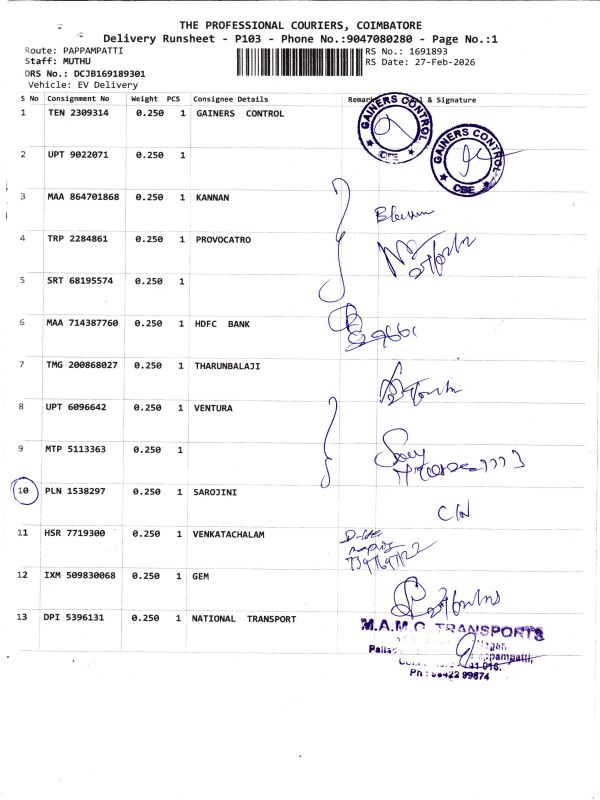 THE PROFESSIONAL COURIERS, COIMBATORE
Delivery Runsheet - P103 - Phone No.:9047080280 - Page No.:1
Route: PAPPAMPATTI
RS No.: 1691893
Staff: MUTHU
RS Date: 27-Feb-2026
DRS No.: DCJB169189301
Vehicle: EV Delivery
S No Consignment No Weight PCS Consignee Details & Signature
1 TEN 2309314 0.250 1 GAINERS CONTROL
GAINERS CONTROL
CBE
2 UPT 9022071 0.250 1
GAINERS CONTROL
CBE
3 MAA 864701868 0.250 1 KANNAN
4 TRP 2284861 0.250 1 PROVOCATRO
5 SRT 68195574 0.250 1
6 MAA 714387760 0.250 1 HDFC BANK
7 TMG 200868027 0.250 1 THARUNBALAJI
8 UPT 6096642 0.250 1 VENTURA
9 MTP 5113363 0.250 1
10 PLN 1538297 0.250 1 SAROJINI
11 HSR 7719300 0.250 1 VENKATACHALAM
12 IXM 509830068 0.250 1 GEM
13 DPI 5396131 0.250 1 NATIONAL TRANSPORT
TRANSPORTS